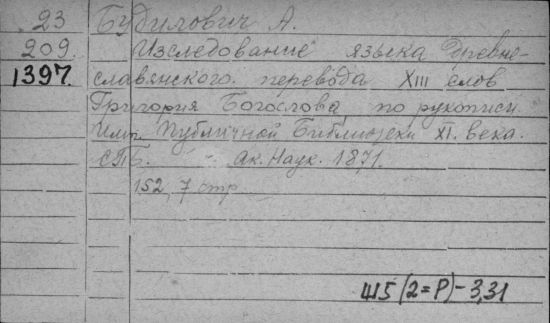 23 Будилович А.
209. Изследование языка древне-
1397 славянского перевода XIII слов
Григория Богослова по рукописи
Имп. Публичной Библиотеки XI. века.
СПБ. Ак. Наук. 1871.
152, 7 стр
Ш5(2=Р)-3,31